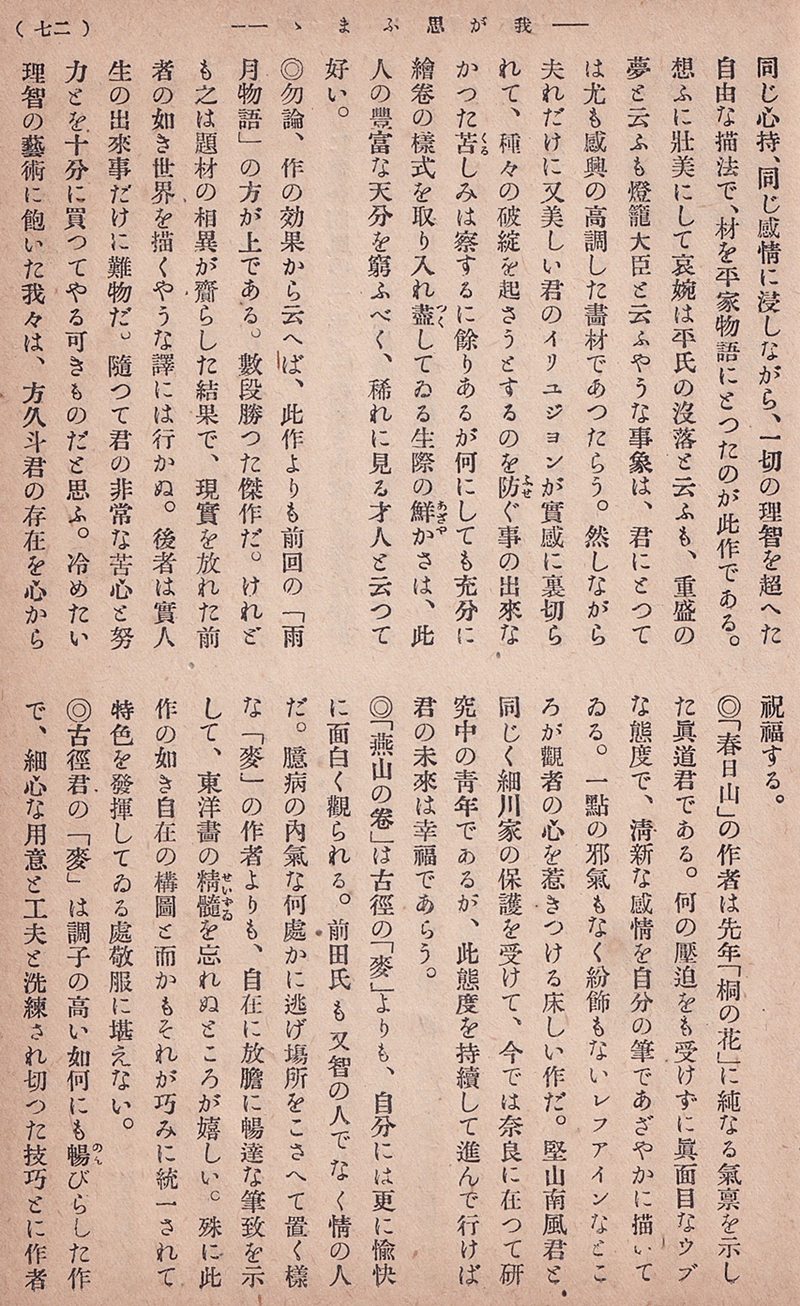 (七二)
――我が思ふまゝ――
同じ心持、同じ感情に浸しながら、一切の理智を超へた
自由な描法で、材を平家物語にとつたのが此作である。
想ふに壯美にして哀婉は平氏の沒落と云ふも、重盛の
夢と云ふも燈籠大臣と云ふやうな事象は、君にとつて
は尤も感興の高調した畵材であつたらう。然しながら
夫れだけに又美しい君のイリユジヨンが實感に裏切ら
れて、種々の破綻を起さうとするのを防ぐ事の出來な
かつた苦しみは察するに餘りあるが何にしても充分に
繪卷の樣式を取り入れ盡してゐる生際の鮮かさは、此
人の豐富な天分を窮ふべく、稀れに見る才人と云つて
好い。
◎勿論、作の効果から云へば、此作よりも前回の「雨
月物語」の方が上である。數段勝つた傑作だ。けれど
も之は題材の相異が齎らした結果で、現實を放れた前
者の如き世界を描くやうな譯には行かぬ。後者は實人
生の出來事だけに難物だ。隨つて君の非常な苦心と努
力とを十分に買つてやる可きものだと思ふ。冷めたい
理智の藝術に飽いた我々は、方久斗君の存在を心から
祝福する。
◎「春日山」の作者は先年「桐の花」に純なる氣禀を示し
た眞道君である。何の壓迫をも受けずに眞面目なウブ
な態度で、淸新な感情を自分の筆であざやかに描いて
ゐる。一點の邪氣もなく紛飾もないレフアインなとこ
ろが觀者の心を惹きつける床しい作だ。堅山南風君と
同じく細川家の保護を受けて、今では奈良に在つて硏
究中の靑年であるが、此態度を持續して進んで行けば
君の未來は幸福であらう。
◎「燕山の卷」は古徑の「麥」よりも、自分には更に愉快
に面白く觀られる。前田氏も又智の人でなく情の人
だ。臆病の內氣な何處かに逃げ塲所をこさへて置く樣
な「麥」の作者よりも、自在に放膽に暢達な筆致を示
して、東洋畵の精髓を忘れぬところが嬉しい。殊に此
作の如き自在の構圖と而かもそれが巧みに統一されて
特色を發揮してゐる處敬服に堪えない。
◎古徑君の「麥」は調子の高い如何にも暢びらした作
で、細心な用意と工夫と洗練され切つた技巧とに作者